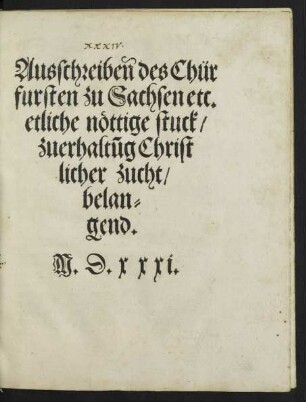 XXXIV.
Ausschreibeñ des Chür
fursten zu Sachsen etc.
etliche nöttige stuck/
zuerhaltūg Christ
licher zucht/
belan-
gend.
M. D. x x xi.